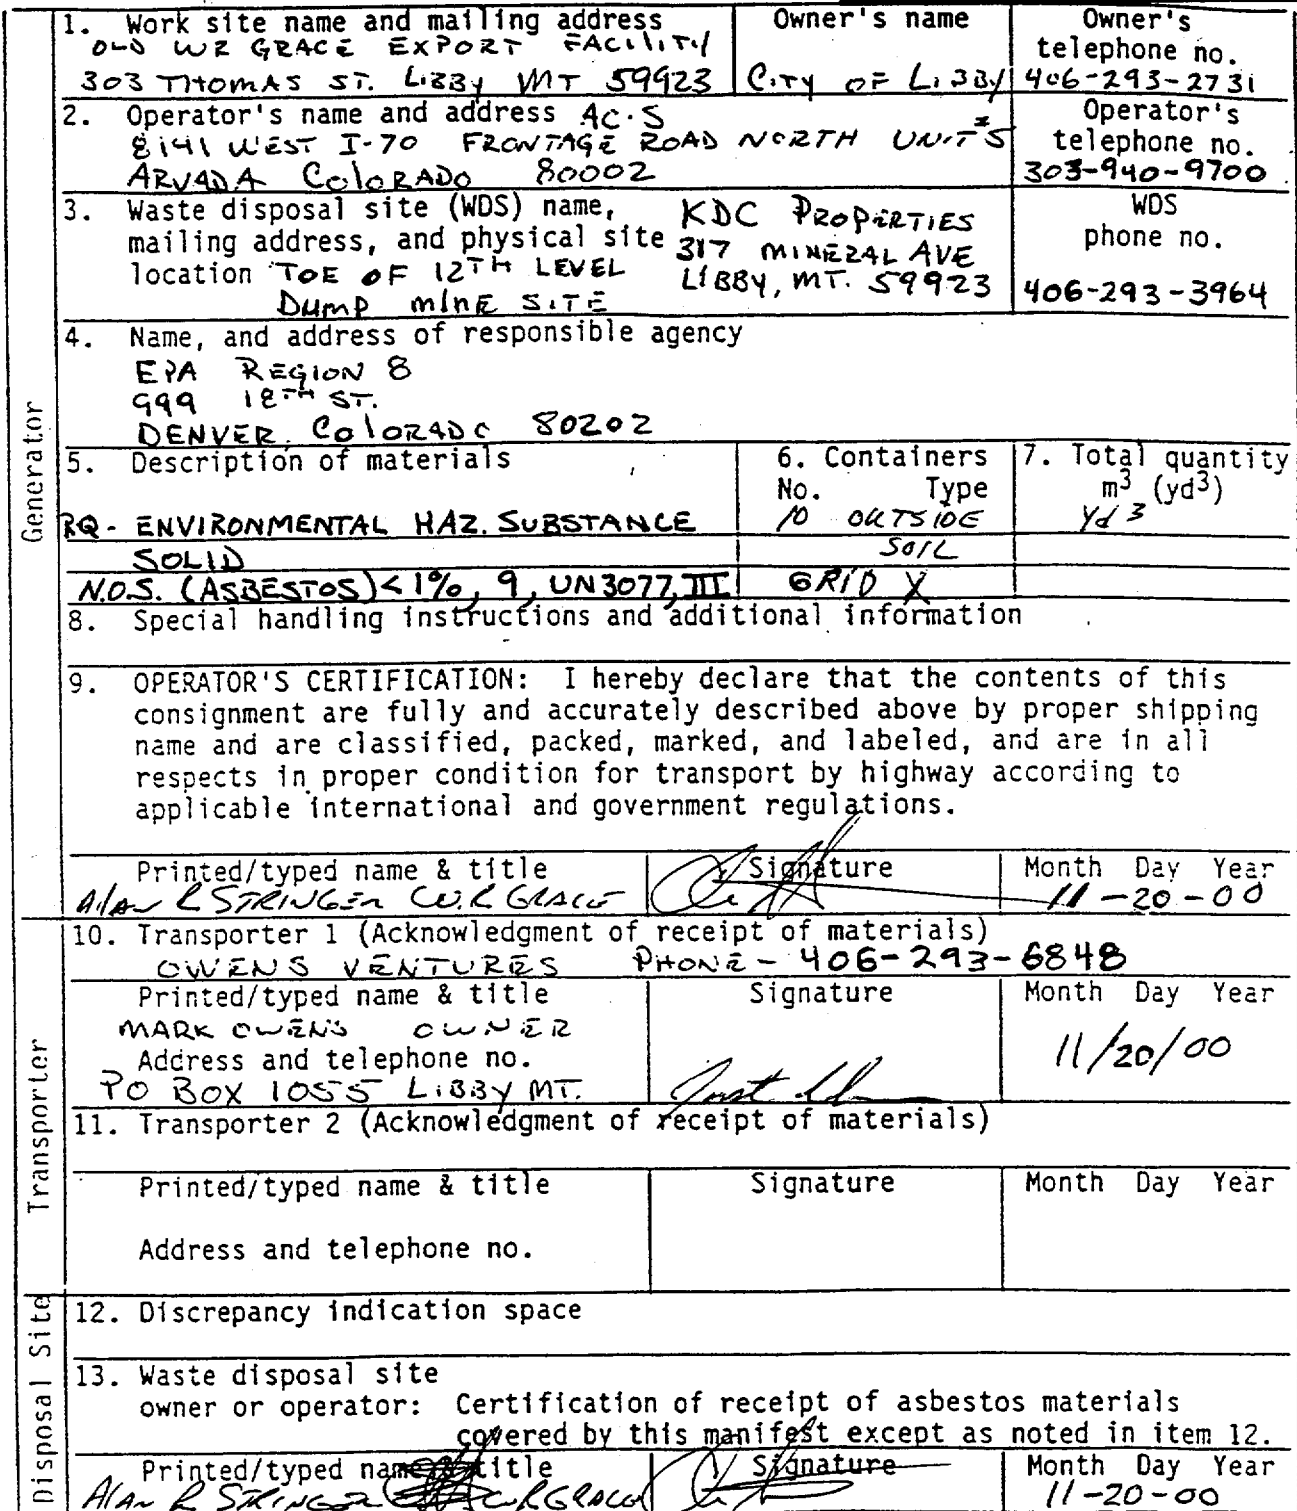 1. Work site name and mailing address
OLD WR GRACE EXPORT FACILITY
303 THOMAS ST. LIBBY MT 59923
Owner's name
CITY OF LIBBY
Owner's
telephone no.
406-293-2731
2. Operator's name and address AC.S
8141 WEST I-70 FRONTAGE ROAD NORTH UNIT #5
ARVADA COLORADO 80002
Operator's
telephone no.
303-940-9700
3. Waste disposal site (WDS) name,
mailing address, and physical site
location TOE OF 12TH LEVEL
DUMP MINE SITE
KDC PROPERTIES
317 MINERAL AVE
LIBBY, MT. 59923
WDS
phone no.
406-293-3964
4. Name, and address of responsible agency
EPA REGION 8
999 18TH ST.
DENVER, COLORADO 80202
Generator
5. Description of materials
RQ - ENVIRONMENTAL HAZ. SUBSTANCE
SOLID
N.O.S. (ASBESTOS) < 1%, 9, UN3077, III
6. Containers
No. Type
10 OUTSIDE
SOIL
GRID X
7. Total quantity
m3 (yd3)
Yd 3
8. Special handling instructions and additional information
9. OPERATOR'S CERTIFICATION: I hereby declare that the contents of this
consignment are fully and accurately described above by proper shipping
name and are classified, packed, marked, and labeled, and are in all
respects in proper condition for transport by highway according to
applicable international and government regulations.
Printed/typed name & title
Alan R STRINGER W.R GRACE
Signature
Month Day Year
11-20-00
Transporter
10. Transporter 1 (Acknowledgment of receipt of materials)
OWENS VENTURES PHONE - 406-293-6848
Printed/typed name & title
MARK OWENS OWNER
Address and telephone no.
PO BOX 1055 LIBBY MT.
Signature
Month Day Year
11/20/00
11. Transporter 2 (Acknowledgment of receipt of materials)
Printed/typed name & title
Address and telephone no.
Signature
Month Day Year
Disposal Site
12. Discrepancy indication space
13. Waste disposal site
owner or operator: Certification of receipt of asbestos materials
covered by this manifest except as noted in item 12.
Printed/typed name & title
Alan R STRINGER W.R GRACE
Signature
Month Day Year
11-20-00